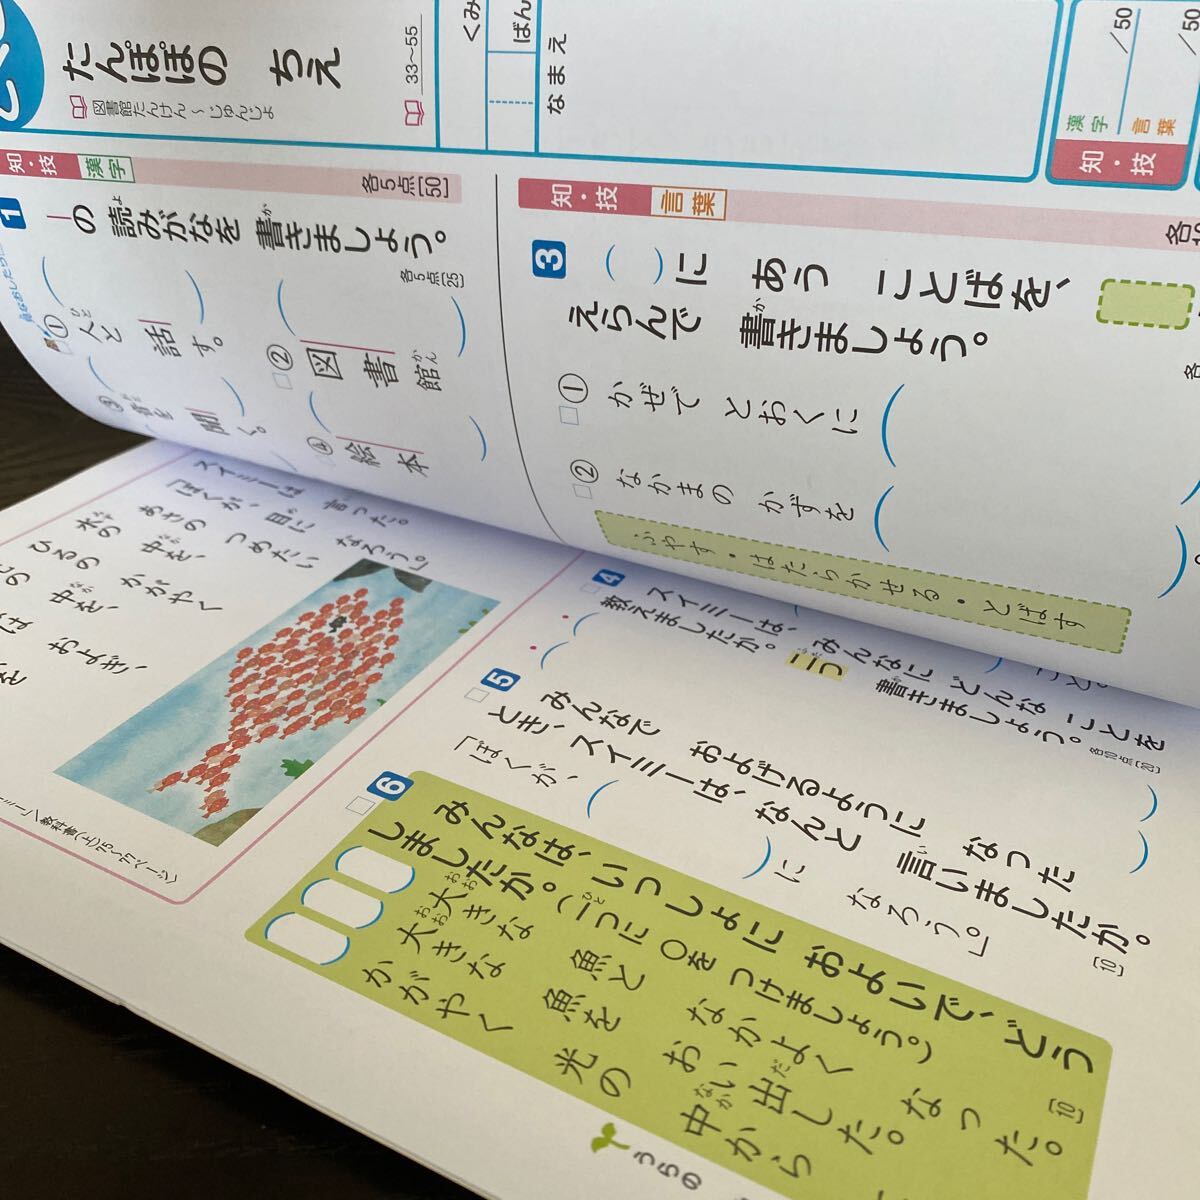 たんぽぽの ちえ
図書館たんけん～じゅんじょ
33～55
くみ
ばん
なまえ
/50
/50
漢字
言葉
知・技
知・技
漢字
各5点[50]
1
―の 読みがなを 書きましょう。
各5点[25]
① 人と 話す。
② 図書館
③ 音を 聞く。
④ 絵本
知・技
言葉
3
( )に あう ことばを、
えらんで 書きましょう。
① かぜで とおくに
② なかまの かずを
ふやす・はたらかせる・とばす
スイミーは 言った。
「ぼくが、目に なろう。」
あさの つめたい
水の 中を、
ひるの かがやく
中を、
およぎ、
教科書(上)75～77ページ〉
4
スイミーは、みんなに どんな ことを
教えましたか。 書きましょう。
各10点[20]
こと。
5
みんなで およげるように なった
とき、スイミーは、なんと 言いましたか。
[10]
「ぼくが、
に なろう。」
6
みんなは、いっしょに およいで、どう
しましたか。(一つに ○を つけましょう。)
[10]
大きな 魚と なかよく なった。
大きな 魚を おい出した。
かがやく 光の 中から
うらの